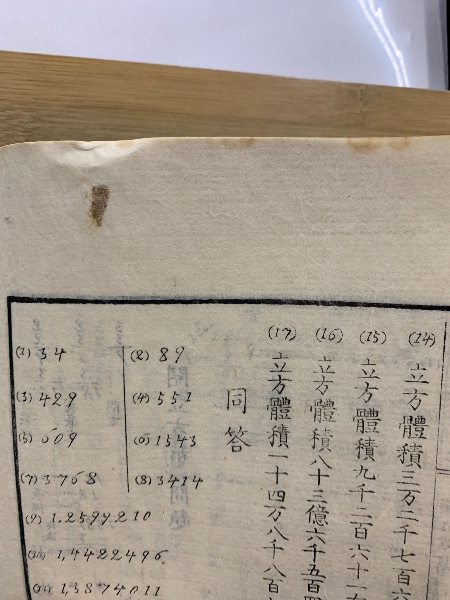 (14) 立方體積三万二千七百六
(15) 立方體積九千二百六十一
(16) 立方體積八十三億六千五百四
(17) 立方體積一十四万八千八百
同答
(1) 34 (2) 89
(3) 429 (4) 551
(5) 609 (6) 1543
(7) 3768 (8) 3414
(9) 1.2599210
(10) 1,4422496
(11) 1,5874011